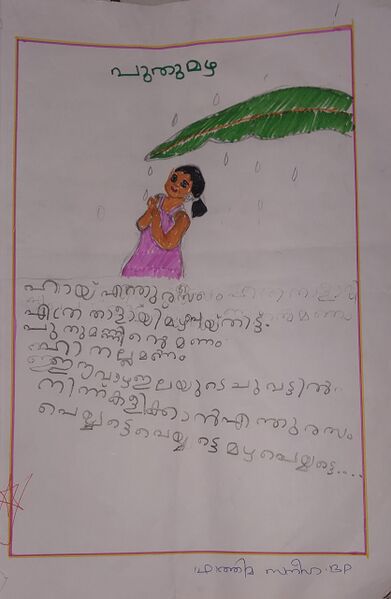 പുതുമഴ
ഹായ് എന്തു രസം
എത്ര നാളായി മഴപെയ്തിട്ട്
പുതുമണ്ണിന്റെ മണം
ഹാ നല്ല മണം
ഈ വാഴ ഇലയുടെ ചുവട്ടിൽ
നിന്ന് കളിക്കാൻ എന്തു രസം
പെയ്യട്ടെ പെയ്യട്ടെ മഴ പെയ്യട്ടെ....
ഫാത്തിമ സനീഹ.